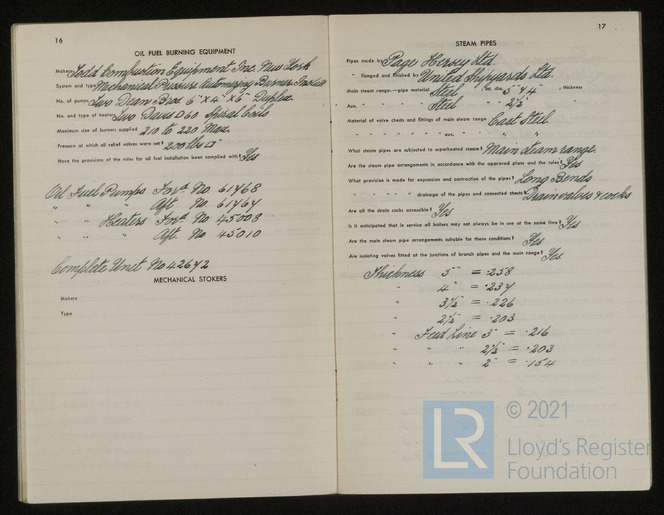 16
OIL FUEL BURNING EQUIPMENT
Makers Todd Combustion Equipment Inc. New York
System and type Mechanical Pressure Automizing Burner Install
No. of pumps Two Dean Bros 6" x 4" x 6" Duplex
No. and type of heaters Two Davis D60 Spiral Coils
Maximum size of burners supplied 210 to 220 Max.
Pressure at which all relief valves were set? 200 lbs □"
Have the provisions of the rules for oil fuel installation been complied with? Yes
Oil Fuel Pumps Forᵈ No. 61768
" " " Aft. No. 61767
" " Heaters Forᵈ No 45008
" " " Aft. No 45010
Complete Unit No 42672
MECHANICAL STOKERS
Makers
Type
17
STEAM PIPES
Pipes made by Page Hersey Ltd.
" flanged and finished by United Shipyards Ltd.
Main steam range:—pipe material Steel , int. dia. 5" & 4" , thickness
Aux. " " " " Steel " " 2½" "
Material of valve chests and fittings of main steam range Cast Steel
" " " " " " " aux. " " " "
What steam pipes are subjected to superheated steam? Main steam range.
Are the steam pipe arrangements in accordance with the approved plans and the rules? Yes
What provision is made for expansion and contraction of the pipes? Long Bends
" " " " " drainage of the pipes and connected chests? Drain valves & cocks
Are all the drain cocks accessible? Yes
Is it anticipated that in service all boilers may not always be in use at the same time? Yes
Are the main steam pipe arrangements suitable for these conditions? Yes
Are isolating valves fitted at the junctions of branch pipes and the main range? Yes
Thickness 5" = .258
" 4" = .237
" 3½" = .226
" 2½" = .203
" Feed Line 3" = .216
" " " 2½" = .203
" " " 2" = .154
LR © 2021
Lloyd's Register
Foundation